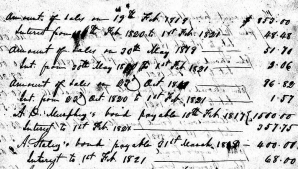 "a"
Amount of sales on 19th Feb 1819 $ 350.00
Interest from 19th Feb 1820 to 1st Feb 1821 48.48
Amount of sales on 30th May 1819 51.70
Int. from 30th May to 1st Feb 1821 2.06
Amount of sales on 22 Oct 96.82
Int. from 22 Oct 1820 to 1st Feb 1821 1.57
A. D. Murphy's bond payable 10th Feb 1817 1500.00
Interest to 1st Feb 357.75
A Staley's bond payable 31st March 1818 400.00
Interest to 1st Feb 1821 68.00